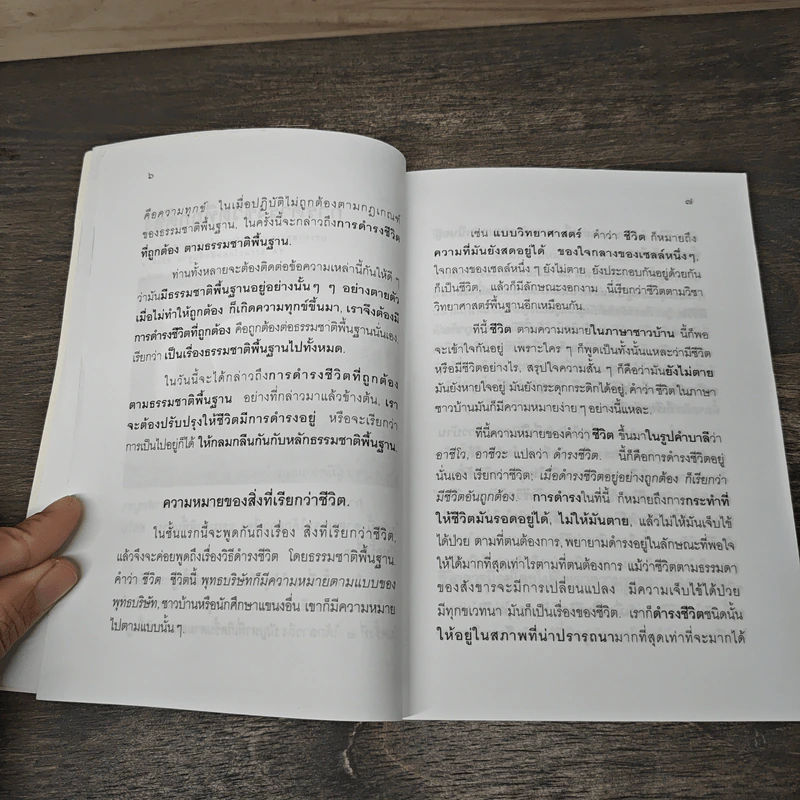 ๖
คือความทุกข์ ในเมื่อปฏิบัติไม่ถูกต้องตามกฎเกณฑ์
ของธรรมชาติพื้นฐาน. ในครั้งนี้จะกล่าวถึงการดำรงชีวิต
ที่ถูกต้อง ตามธรรมชาติพื้นฐาน.
ท่านทั้งหลายจะต้องติดต่อข้อความเหล่านี้กันให้ดี ๆ
ว่ามันมีธรรมชาติพื้นฐานอยู่อย่างนั้น ๆ ๆ อย่างตายตัว
เมื่อไม่ทำให้ถูกต้อง ก็เกิดความทุกข์ขึ้นมา, เราจึงต้องมี
การดำรงชีวิตที่ถูกต้อง คือถูกต้องต่อธรรมชาติพื้นฐานนั่นเอง
เรียกว่า เป็นเรื่องธรรมชาติพื้นฐานไปทั้งหมด.
ในวันนี้จะได้กล่าวถึงการดำรงชีวิตที่ถูกต้อง
ตามธรรมชาติพื้นฐาน อย่างที่กล่าวมาแล้วข้างต้น. เรา
จะต้องปรับปรุงให้ชีวิตมีการดำรงอยู่ หรือจะเรียกว่า
การเป็นไปอยู่ก็ได้ ให้กลมกลืนกันกับหลักธรรมชาติพื้นฐาน.
ความหมายของสิ่งที่เรียกว่าชีวิต.
ในชั้นแรกนี้จะพูดกันถึงเรื่อง สิ่งที่เรียกว่าชีวิต,
แล้วจึงจะค่อยพูดถึงเรื่องวิธีดำรงชีวิต โดยธรรมชาติพื้นฐาน.
คำว่า ชีวิต ชีวิตนี้ พุทธบริษัทก็มีความหมายตามแบบของ
พุทธบริษัท, ชาวบ้านหรือนักศึกษาแขนงอื่น เขาก็มีความหมาย
ไปตามแบบนั้น ๆ.
๗
เช่น แบบวิทยาศาสตร์ คำว่า ชีวิต ก็หมายถึง
ความที่มันยังสดอยู่ได้ ของใจกลางของเซลล์หนึ่งๆ,
ใจกลางของเซลล์หนึ่ง ๆ ยังไม่ตาย ยังประกอบกันอยู่ด้วยกัน
ก็เป็นชีวิต, แล้วก็มีลักษณะงอกงาม นี่เรียกว่าชีวิตตามวิชา
วิทยาศาสตร์พื้นฐานอีกเหมือนกัน.
ทีนี้ ชีวิต ตามความหมายในภาษาชาวบ้าน นี้ก็พอ
จะเข้าใจกันอยู่ เพราะใคร ๆ ก็พูดเป็นทั้งนั้นแหละว่ามีชีวิต
หรือมีชีวิตอย่างไร, สรุปใจความสั้น ๆ ก็คือว่ามันยังไม่ตาย
มันยังหายใจอยู่ มันยังกระดุกกระดิกได้อยู่, คำว่าชีวิต ในภาษา
ชาวบ้านมันก็มีความหมายง่าย ๆ อย่างนี้แหละ.
ทีนี้ความหมายของคำว่า ชีวิต ขึ้นมาในรูปคำบาลีว่า
อาชีโว, อาชีวะ แปลว่า ดำรงชีวิต. นี้ก็คือการดำรงชีวิตอยู่
นั่นเอง เรียกว่าชีวิต; เมื่อดำรงชีวิตอยู่อย่างถูกต้อง ก็เรียกว่า
มีชีวิตอันถูกต้อง. การดำรงในที่นี้ ก็หมายถึงการกระทำที่
ให้ชีวิตมันรอดอยู่ได้, ไม่ให้มันตาย, แล้วไม่ให้มันเจ็บไข้
ได้ป่วย ตามที่ตนต้องการ, พยายามดำรงอยู่ในลักษณะที่พอใจ
ให้ได้มากที่สุดเท่าไรตามที่ตนต้องการ แม้ว่าชีวิตตามธรรมดา
ของสังขารจะมีการเปลี่ยนแปลง มีความเจ็บไข้ได้ป่วย
มีทุกขเวทนา มันก็เป็นเรื่องของชีวิต. เราก็ดำรงชีวิตชนิดนั้น
ให้อยู่ในสภาพที่น่าปรารถนามากที่สุดเท่าที่จะมากได้